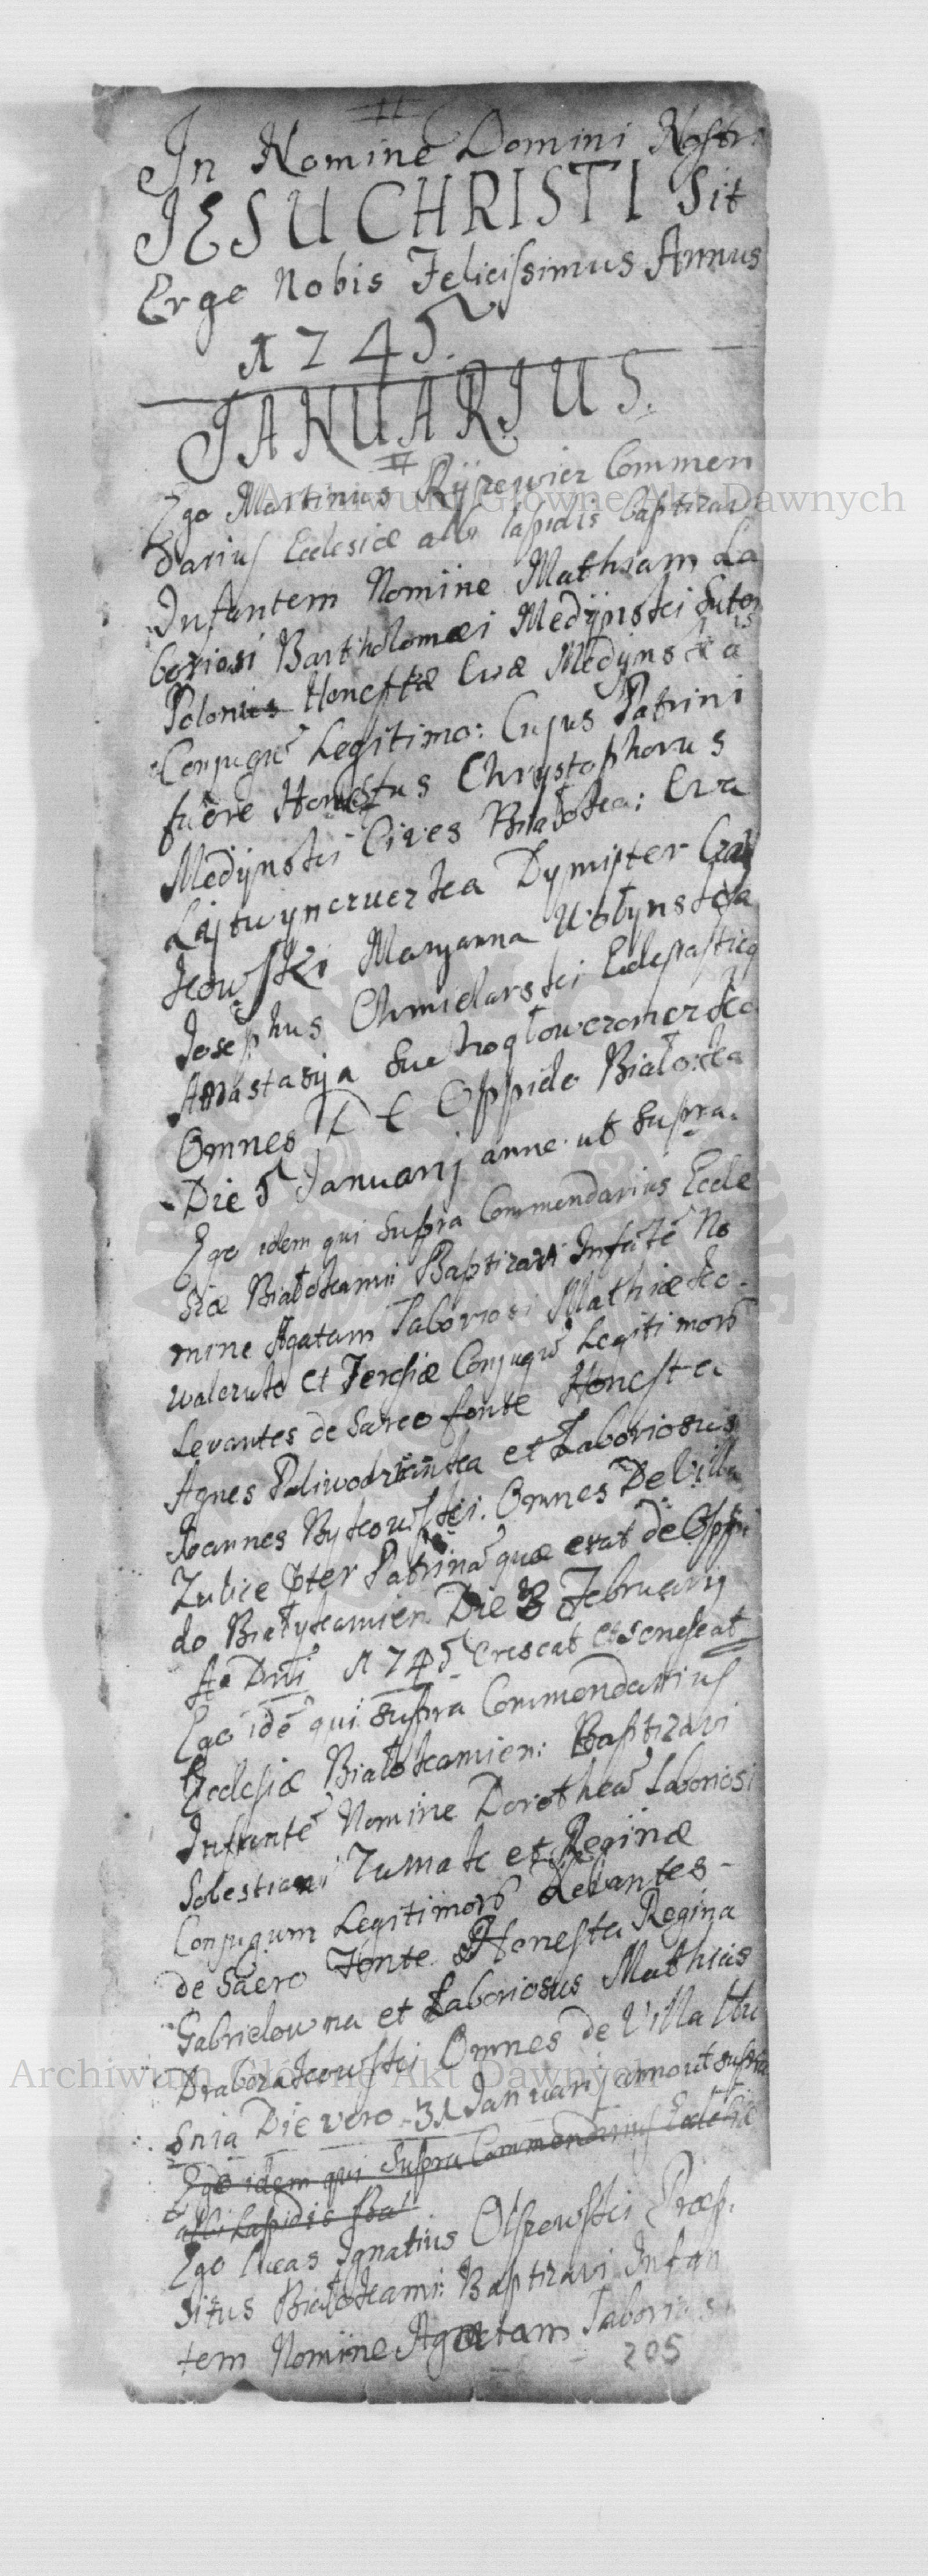 In Nomine Domini Nostri
JESU CHRISTI Sit
Ergo Nobis Felicissimus Annus
1745.
JANUARIUS.
Ego Martinus Commen
darius Ecclesiæ albi lapidis baptizavi
Infantem Nomine Mathiam La
boriosi Bartholomæi Medÿnski Sutoris
Polonus Honestæ Evæ Medÿnska
Conjugũ Legitimo: Cujus Patrini
fuere Honestus Chrystophorus
Medÿnski Cives Białoka: Eva
Dymiter
kowski Maryanna Wołynska
Josephus Chmielarski Ecclesiastic9
Anastasyja
Omnes De Oppido Białoka
Die 5 Januarij anno ut supra.
Ego idem qui supra Commendarius Eccle
siæ Białokamii Baptizavi Infãtẽ No
mine Agatam Laboriosi Mathiæ Ko-
walczuk et Teresiæ Conjugũ Legitimorũ
Levantes de Sacro fonte Honesta
Agnes et Laboriosus
Joannes Bykowski. Omnes De Villa
Zulice pter Patrinã quæ erat de Oppi
do Białykamien Die 3 Februarij
Ao Dni 1745 Crescat et senescat
Ego idẽ qui supra Commendarius
Ecclesiæ Białokamien: Baptizavi
Infantẽ Nomine Dorotheã Laboriosi
Sebestiani Tumak et Reginæ
Conjugum Legitimorũ Levantes-
de Sacro Fonte Honesta Regina
Gabrielowna et Laboriosus Mathias
Omnes de Villa Hu
snia Die vero 31 Januarij anno ut supra
Ego idem qui supra Commendarius Ecclesiæ
albi Lapidis
Ego Lucas Ignatius Olszewski Præpo
situs Białokami: Baptizavi Infan
tem Nomine Agatam Laborios
205
Archiwum Główne Akt Dawnych
Archiwum Główne Akt Dawnych